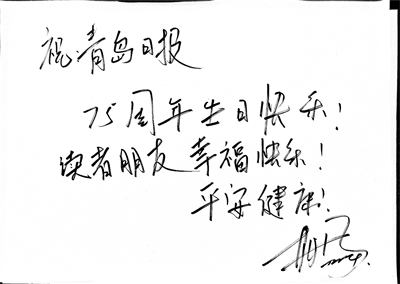 祝青岛日报
75周年生日快乐!
读者朋友幸福快乐!
平安健康!